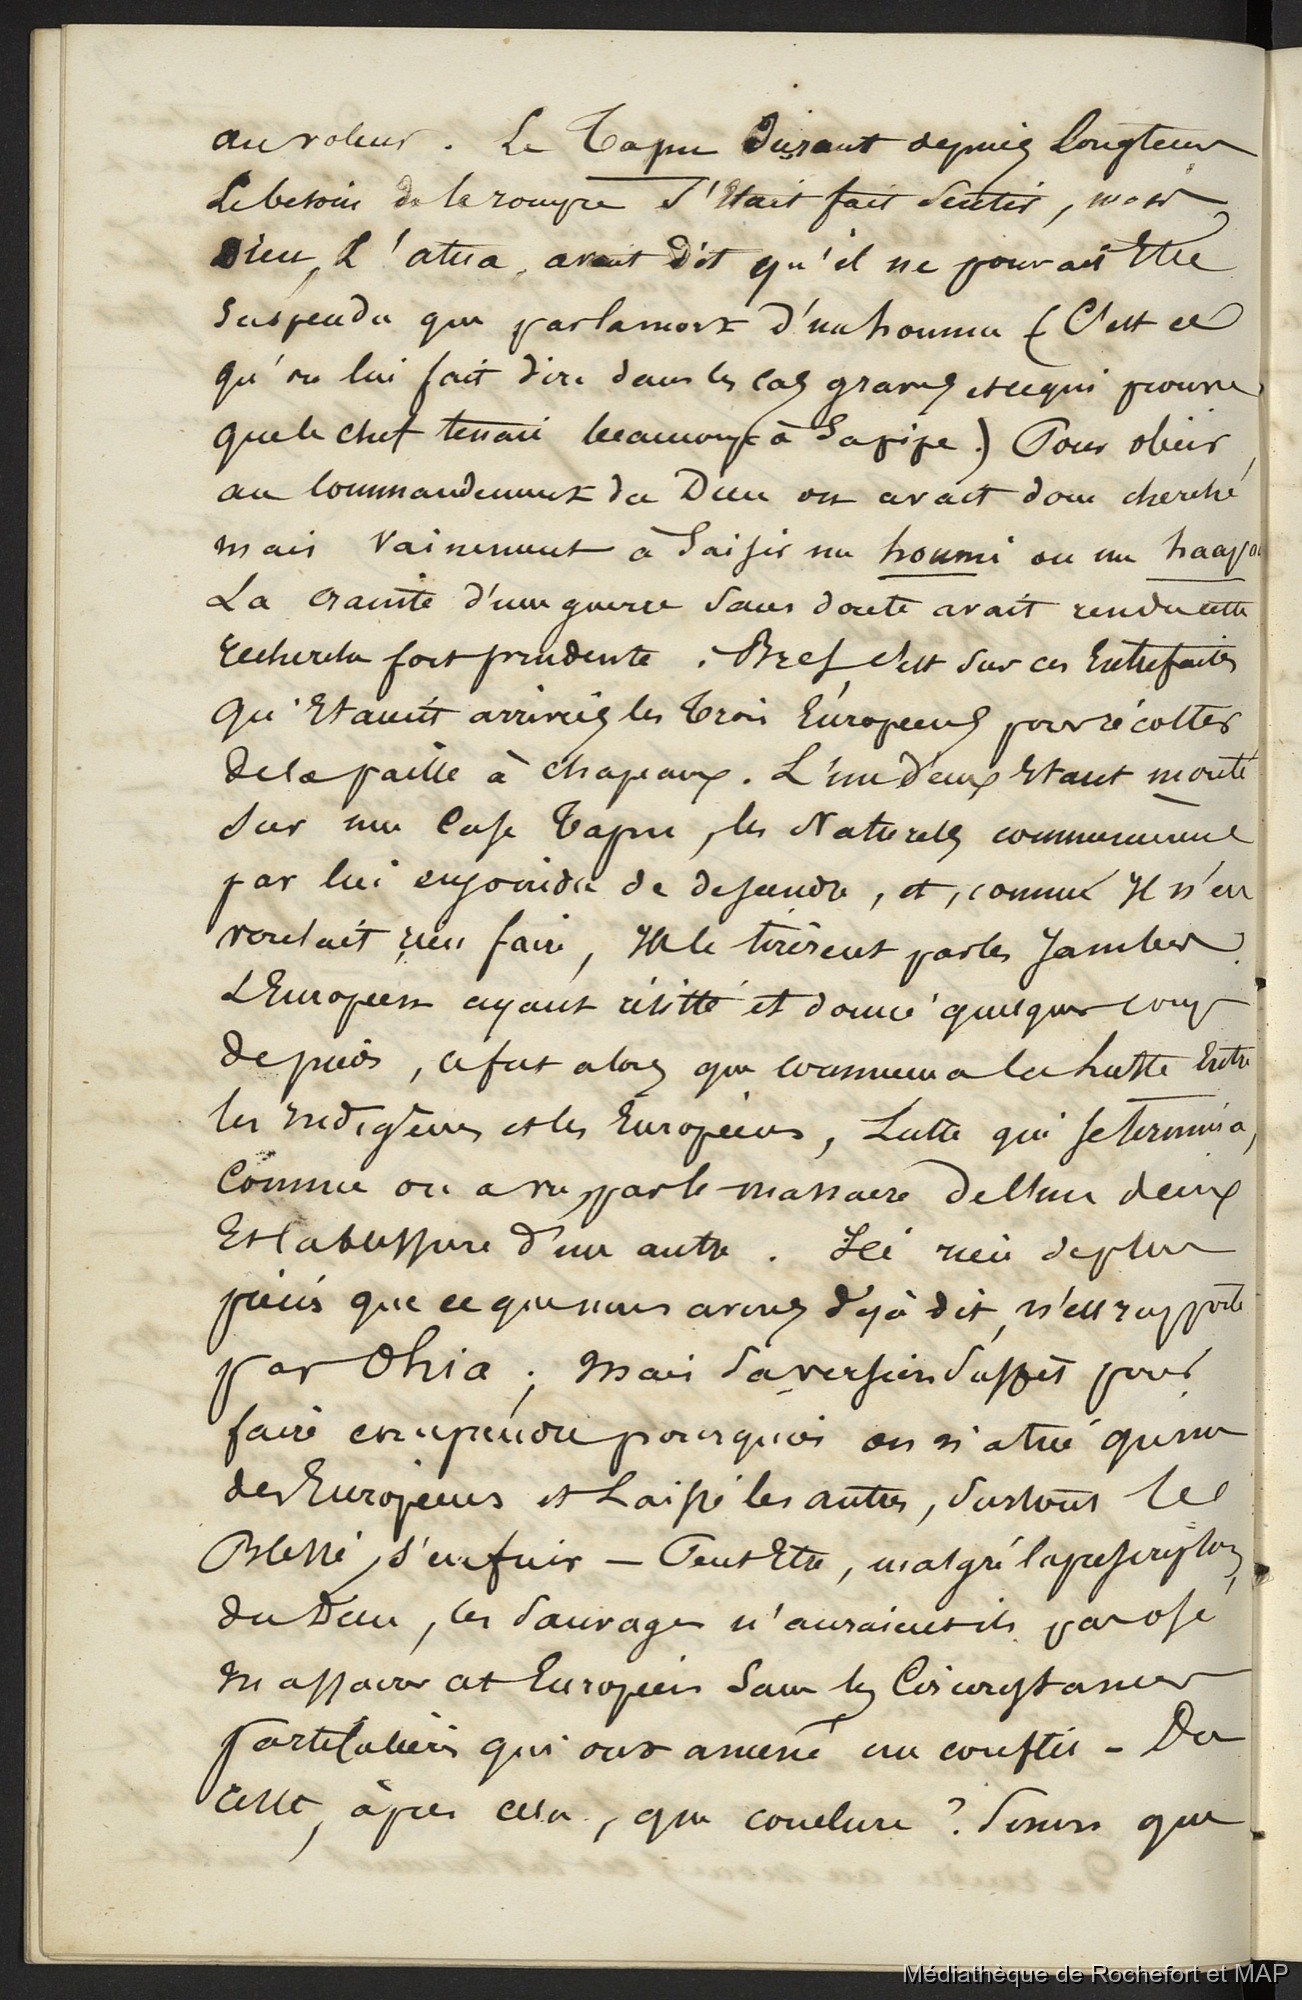 au voleur. Le Tapu durant depuis longtems
le besoin de le rompre s'était fait sentir, mais
Dieu, l'atua, avait dit qu'il ne pouvait être
suspendu que par la mort d'un houmi (C'est ce
qu'on lui fait dire dans les cas graves et ce qui prouve
que le chef tenait beaucoup à sa pipe.) Pour obéir
au commandement du Dieu on avait donc cherché
mais vainement à saisir un houmi ou un haapa
La crainte d'une guerre sans doute avait rendu cette
recherche fort prudente. Bref c'est sur ces entrefaites
qu'étaient arrivés les trois Européens pour récolter
de la paille à chapeaux. L'un d'eux étant monté
sur une case Tapu, les Naturels commencèrent
par lui enjoindre de descendre, et, comme il n'en
voulait rien faire, ils le tirèrent par les jambes.
L'Européen ayant résisté et donné quelques coups
de pieds, ce fut alors que commença la lutte entre
les indigènes et les Européens, lutte qui se termina,
comme on a vu, par le massacre de l'un deux
et la blessure d'un autre. Ici rien de plus
précis que ce que nous avons déjà dit, n'est rapporté
par Ohia; mais sa version suffit pour
faire comprendre pourquoi on n'a tué qu'un
des Européens et laissé les autres, surtout le
Blessé, s'enfuir — Peut être, malgré la prescription
du Dieu, les sauvages n'auraient ils pas osé
massacrer cet Européen sans les circonstances
particulières qui ont amené un conflit — Du
reste, après cela, que conclure? Sinon que
Médiathèque de Rochefort et MAP